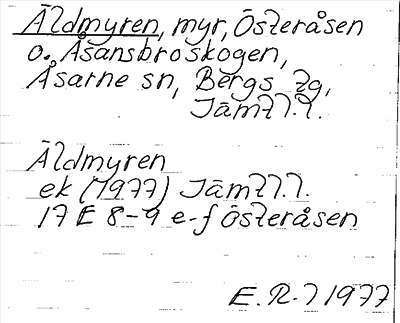 Äldmyren, myr, Österåsen
o. Åsansbroskogen,
Åsarne sn, Bergs tg,
Jämtl.l.
Äldmyren
ek (1977) Jämtl.l.
17 E 8-9 e-f Österåsen
E.R-l 1977